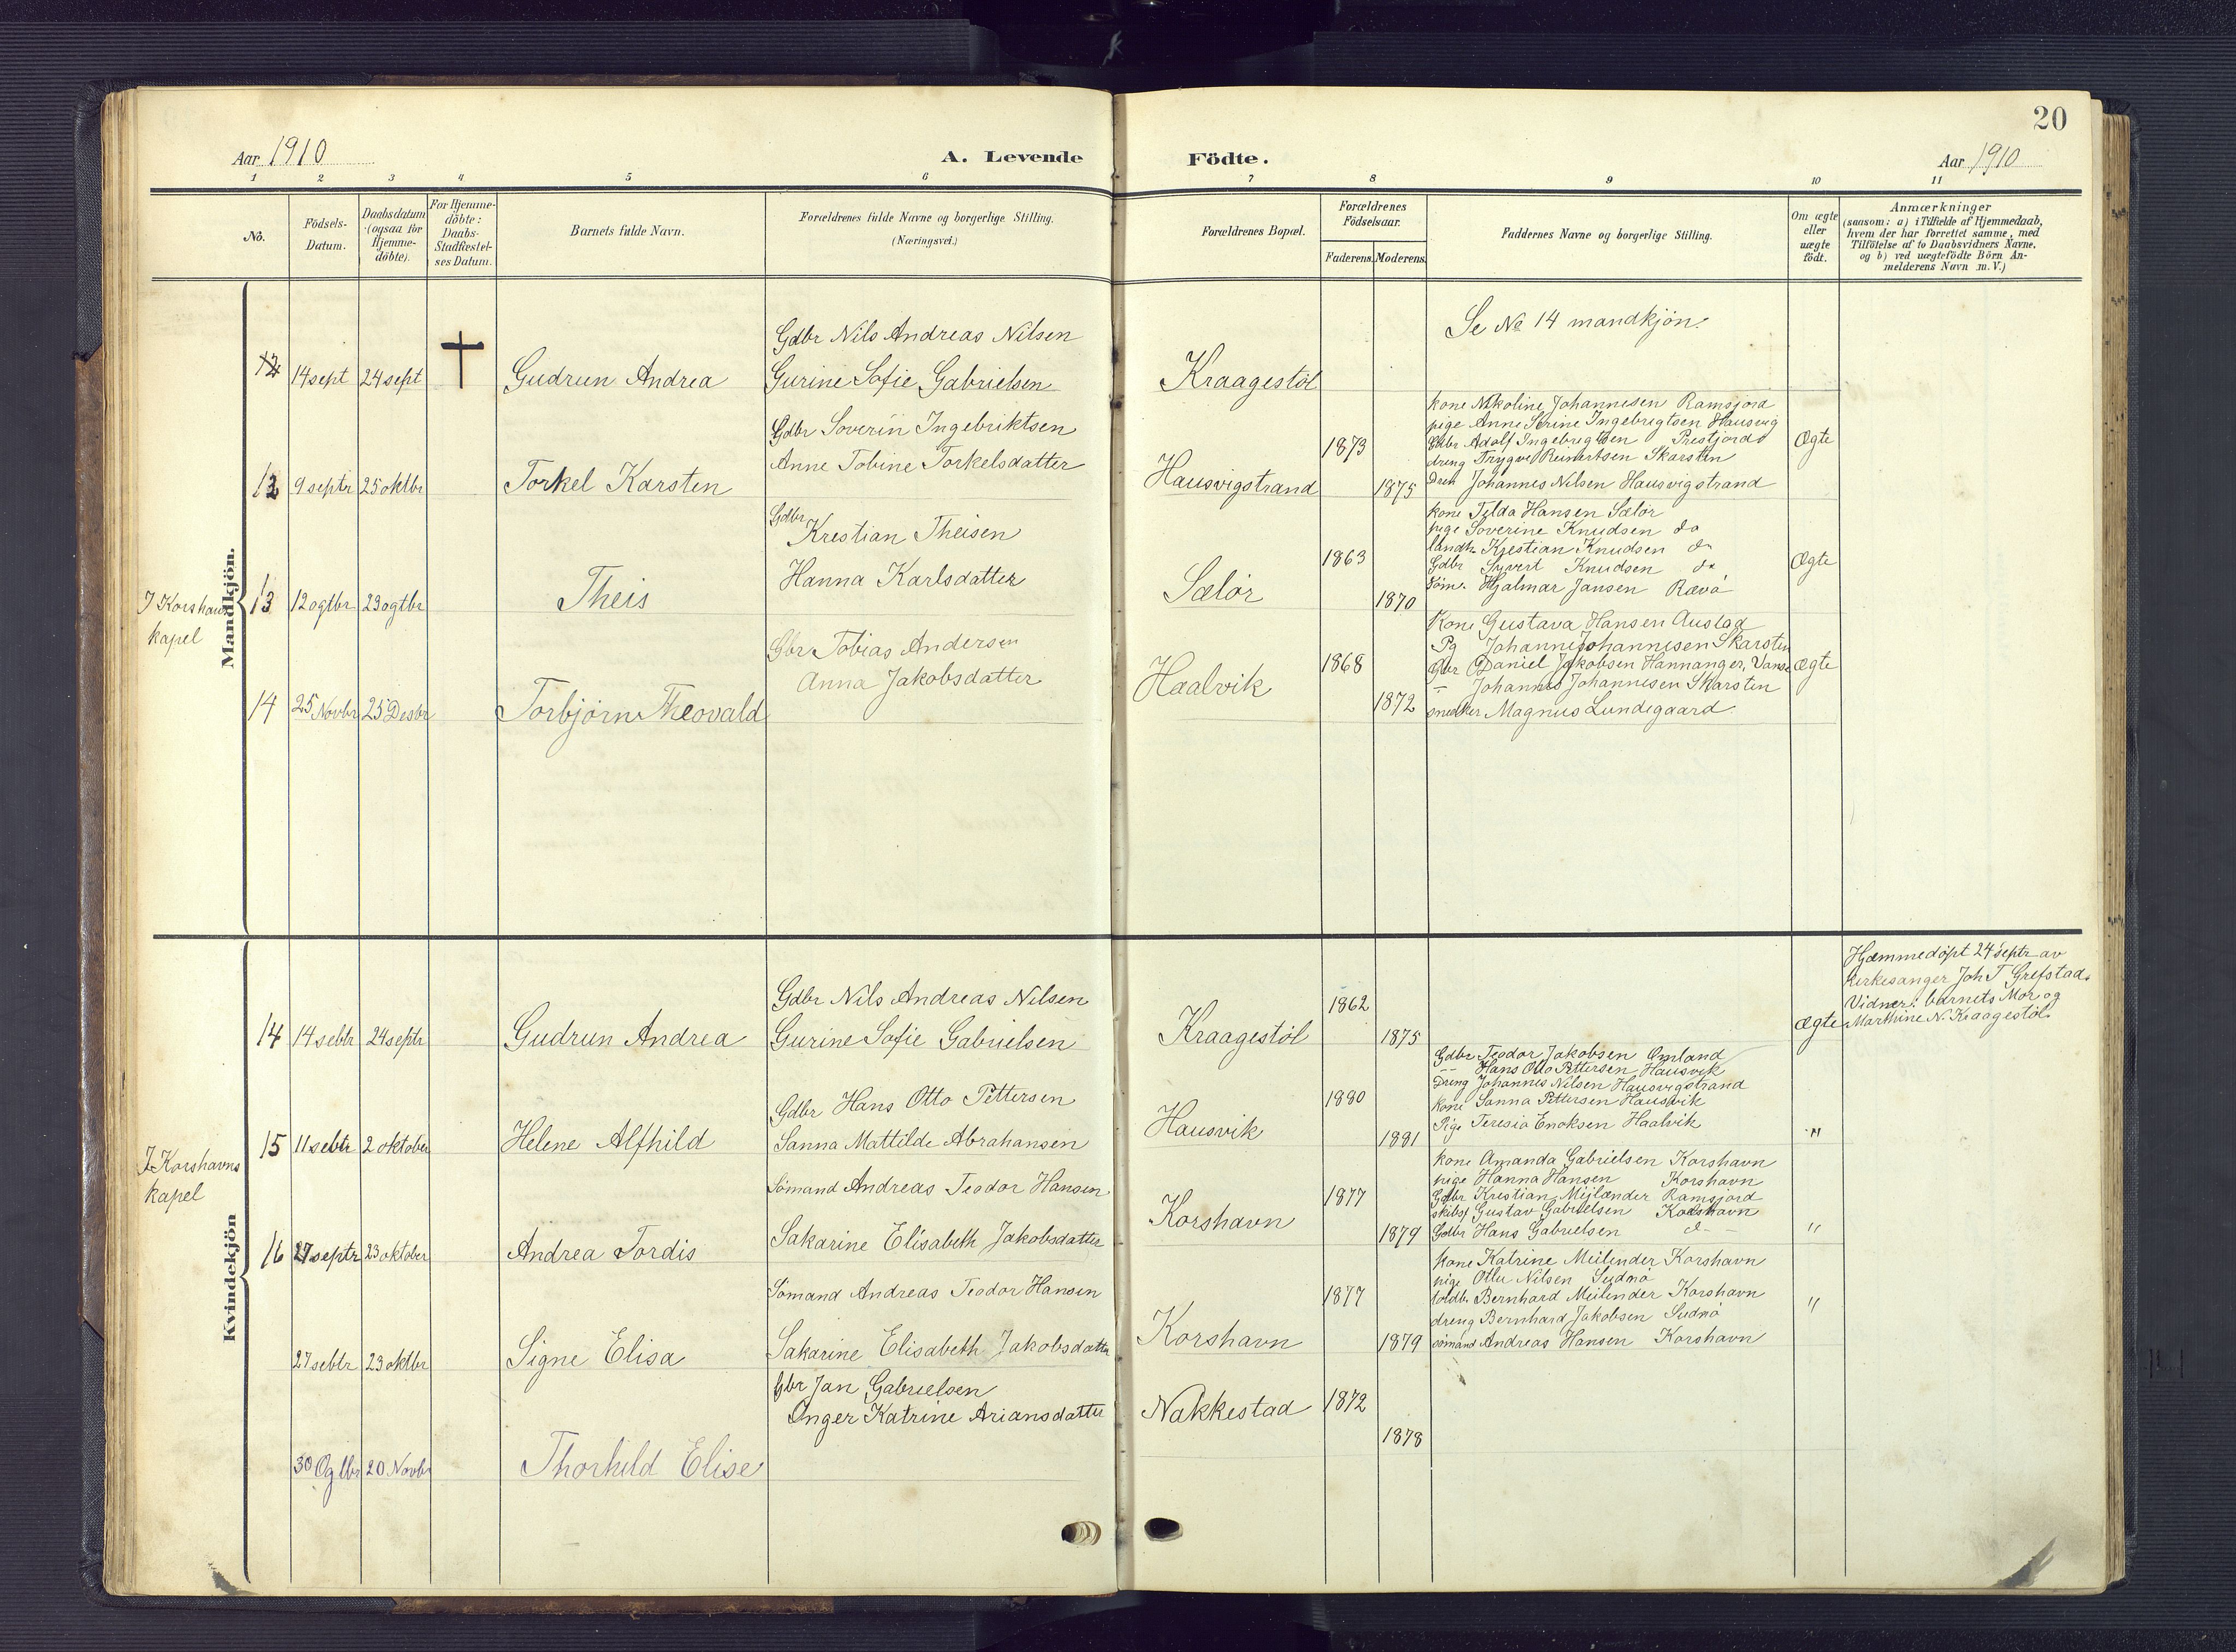 20
Aar 1910
A. Levende Födte.
Aar 1910
1 2 3 4 5 6 7 8 9 10 11
No.
Födsels-Datum.
Daabsdatum (ogsaa for Hjemme-döbte).
For Hjemme-döbte: Daabs-Stadfæstel-ses Datum.
Barnets fulde Navn.
Forældrenes fulde Navne og borgerlige Stilling.
(Næringsvei.)
Forældrenes Bopæl.
Forældrenes Födselsaar.
Faderens. Moderens.
Faddernes Navne og borgerlige Stilling.
Om ægte eller uægte födt.
Anmærkninger
(saasom: a) i Tilfælde af Hjemmedaab,
hvem der har forrettet samme, med
Tilföielse af to Daabsvidners Navne,
og b) ved uægtefödte Börn An-
melderens Navn m. V.)
Mandkjön.
Gdbr Nils Andreas Nilsen
14 sept 24 sept Gudrun Andrea Gurine Sofie Gabrielsen Kraagestöl
Se № 14 mandkjön.
Gdbr Soverin Ingebriktsen
Anne Tobine Torkelsdatter
12 9 septr 25 oktbr Torkel Karsten Hausvigstrand 1873 1875
kone Nikoline Johannesen Ramsjord
pige Anne Serine Ingebrigtsen Hausvig
Gdbr Adolf Ingebrigtsen Prestjord
dreng Trygve Reinertsen Skarsten
Johannes Nilsen Hausvigstrand
Ægte
I Korshavn
kapel
Gdbr
Krestian Theisen
Hanna Karlsdatter
13 12 ogtbr 23 ogtbr Theis Sælör 1863 1870
kone Tilda Hansen Sælör
pige Soverine Knudsen do
Krestian Knudsen do
Gdbr Syvert Knudsen do
söm. Hjalmar Jansen Rævö
Ægte
Gbr Tobias Andersen
Anna Jakobsdatter
14 25 Novbr 25 Desbr Torbjörn Theovald Haalvik 1868 1872
Kone Gustava Hansen Austad
Pg Johanne Johannesen Skarsten
Gbr Daniel Jakobsen Hannanger, Vanse
– Johannes Johannesen Skarsten
snedker Magnus Lundegaard
Ægte
Kvindekjön
Gdbr Nils Andreas Nilsen
14 14 sebtr 24 septr Gudrun Andrea Gurine Sofie Gabrielsen Kraagestöl 1862 1875
Ægte
Hjemmedöpt 24 septr av
kirkesanger Joh T Grefstad.
Vidner: barnets Mor og
Marthine N. Kraagestöl.
I Korshavns
kapel
Gdbr Hans Otto Pettersen
15 11 sebtr 2 oktober Helene Alfhild Sanna Mattilde Abrahansen Hausvik 1880 1881
Gdbr Teodor Jakobsen Omland
-- Hans Otto Pettersen Hausvik
Dreng Johannes Nilsen Hausvigstrand
kone Sanna Pettersen Hausvik
Pige Teresia Enoksen Haalvik
"
Sömand Andreas Teodor Hansen
16 27 septr 23 oktober Andrea Tordis Sakarine Elisabeth Jakobsdatter Korshavn 1877 1879
kone Amanda Gabrielsen Korshavn
pige Hanna Hansen Korshavn
Gdbr Krestian Mejlænder Ramsjord
skibsf Gustav Gabrielsen Korshavn
Gdbr Hans Gabrielsen d –
"
Sömand Andreas Teodor Hansen
27 sebtr 23 oktbr Signe Elisa Sakarine Elisabeth Jakobsdatter Korshavn 1877 1879
kone Katrine Meilender Korshavn
pige Nilsen
Bernhard Meilender Korshavn
dreng Bernhard Jakobsen
sömand Andreas Hansen Korshavn
"
Gbr Jan Gabrielsen
Inger Katrine Ariansdatter
30 Ogtbr 20 Novbr Thorhild Elise Nakkestad 1872 1878